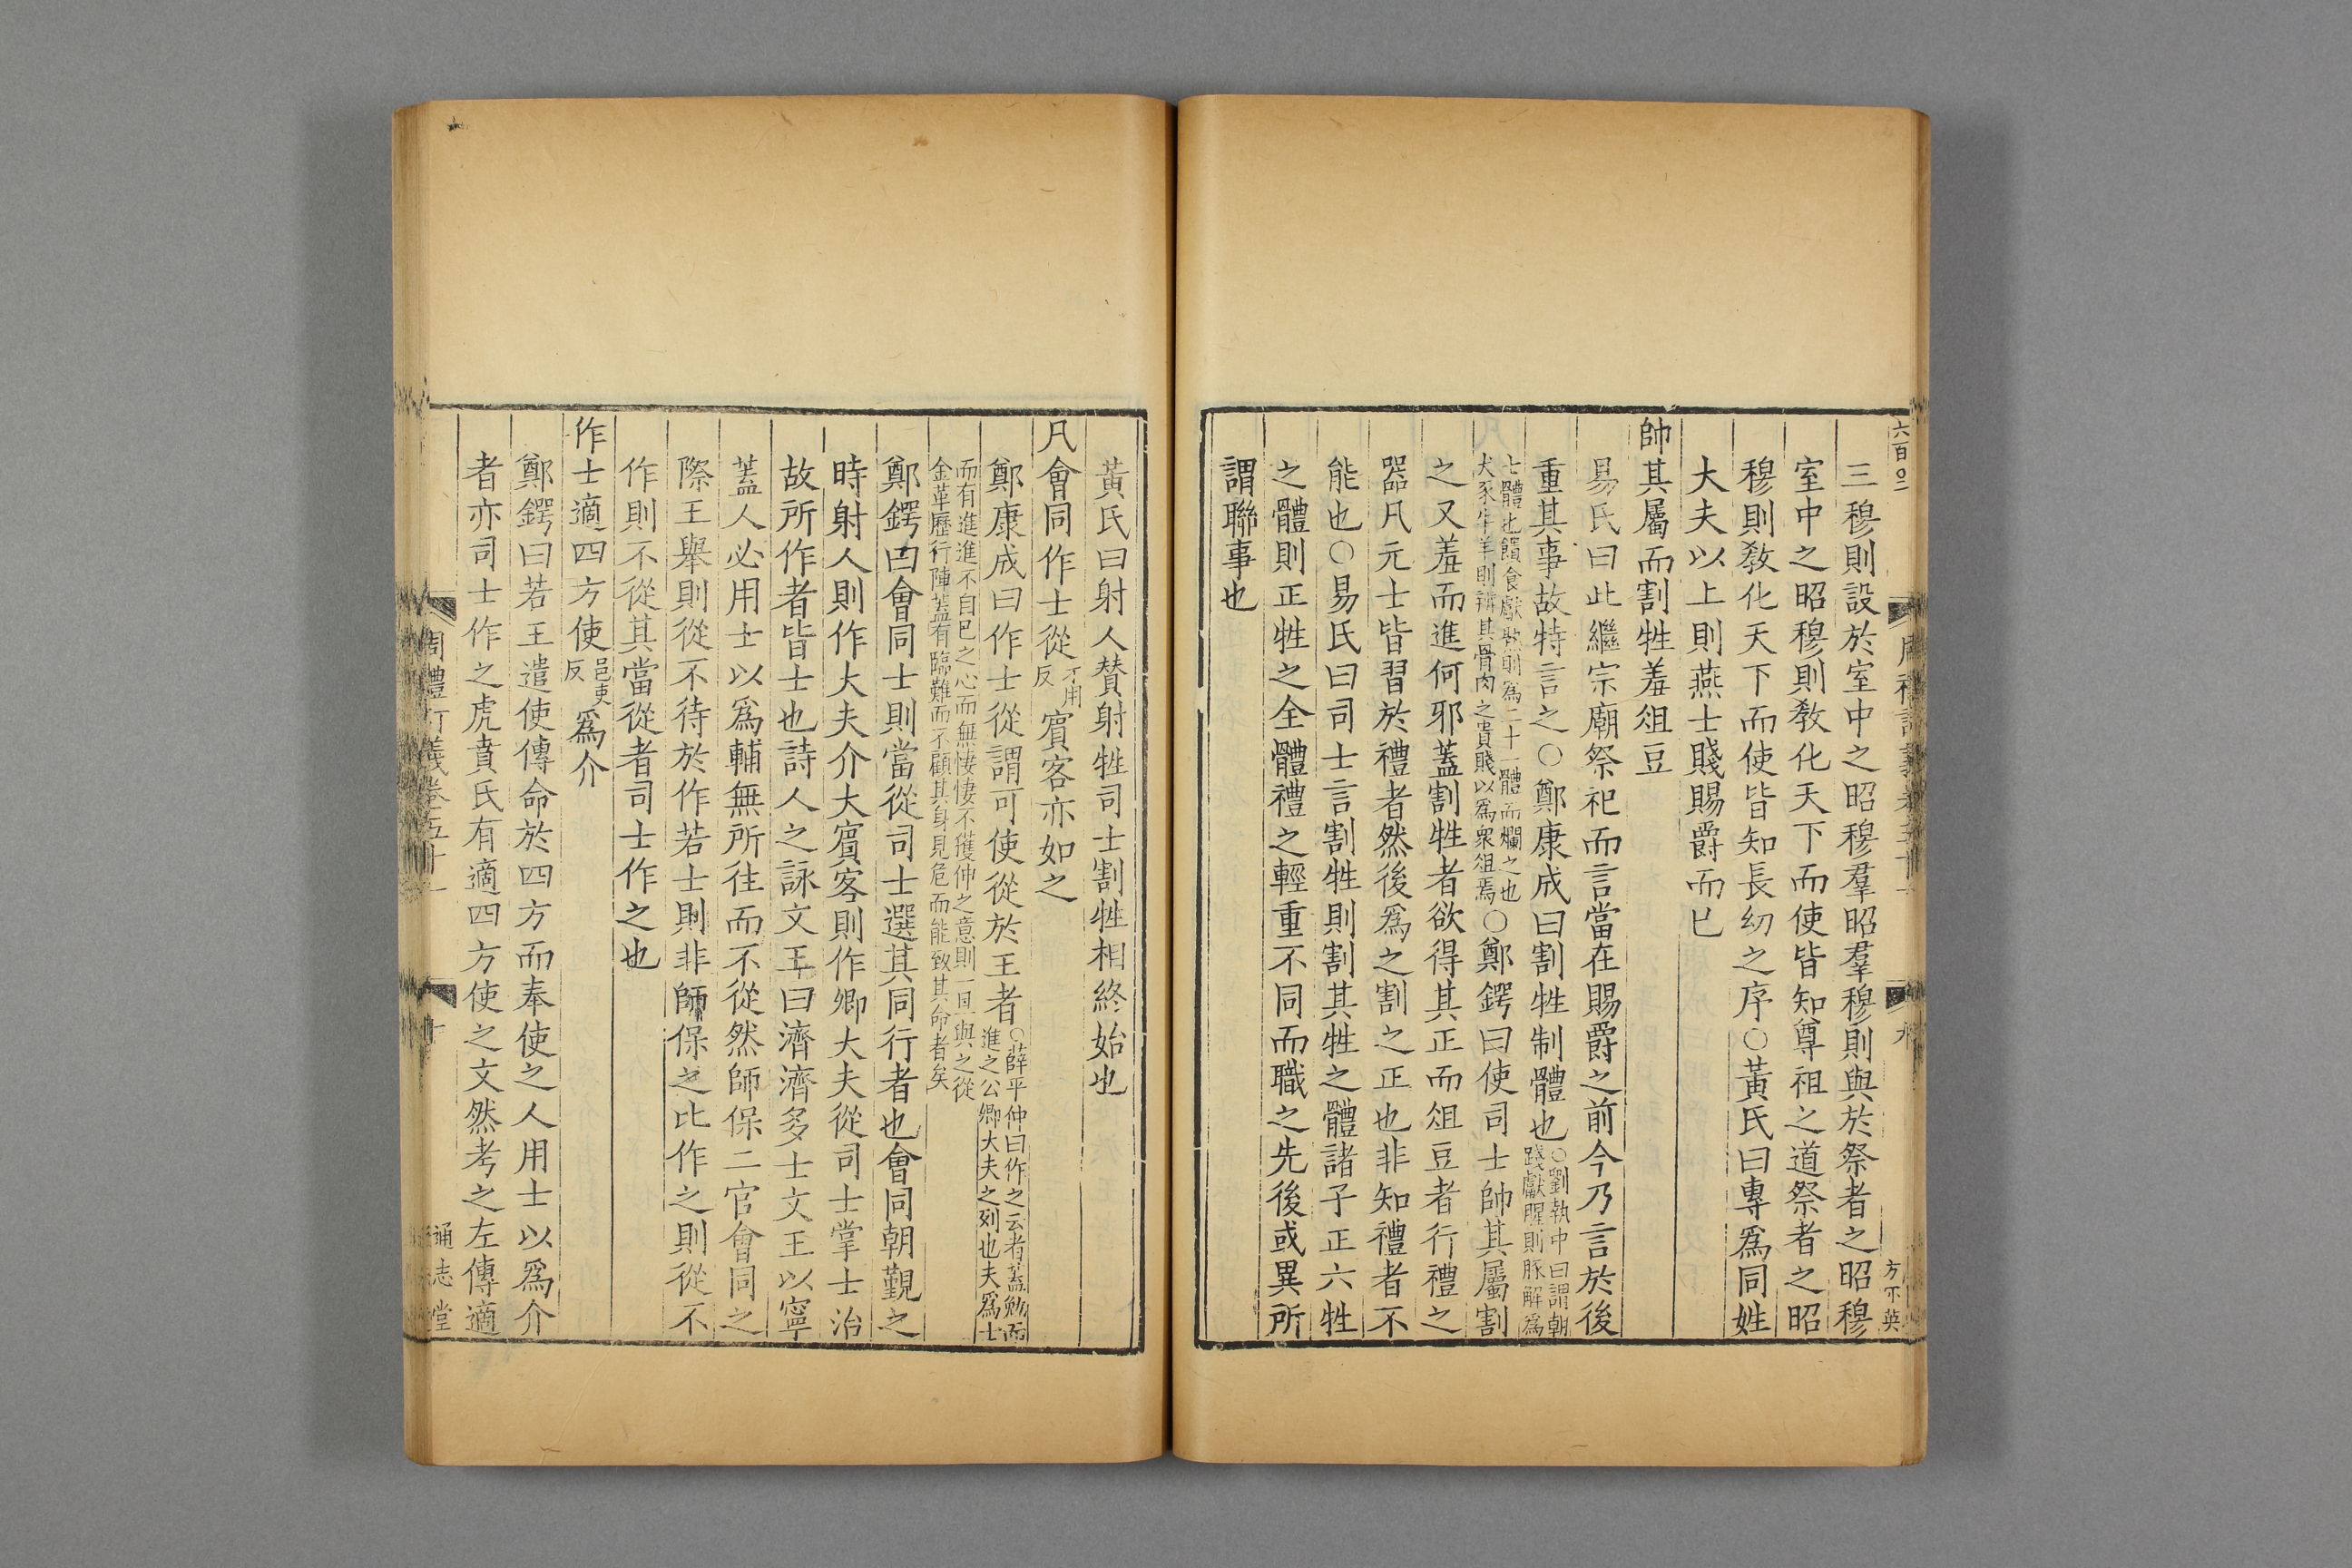 六百〇二
方不英
三穆則設於室中之昭穆羣昭羣穆則與於祭者之昭穆
室中之昭穆則敎化天下而使皆知尊祖之道祭者之昭
穆則敎化天下而使皆知長幼之序○黃氏曰專爲同姓
大夫以上則燕士賤賜爵而已
帥其屬而割牲羞俎豆
易氏曰此繼宗廟祭祀而言當在賜爵之前今乃言於後
重其事故特言之○鄭康成曰割牲制體也○劉執中曰謂朝
踐獻腥則豚解爲
七體也饋食獻熟則爲二十一體而爓之也
犬豕牛羊則辨其骨肉之貴賤以爲衆俎焉○鄭鍔曰使司士帥其屬割
之又羞而進何邪蓋割牲者欲得其正而俎豆者行禮之
器凡元士皆習於禮者然後爲之割之正也非知禮者不
能也○易氏曰司士言割牲則割其牲之體諸子正六牲
之體則正牲之全體禮之輕重不同而職之先後或異所
謂聯事也
黃氏曰射人賛射牲司士割牲相終始也
凡會同作士從才用反賓客亦如之
鄭康成曰作士從謂可使從於王者○薛平仲曰作之云者蓋勉而
進之公卿大夫之列也夫爲士
而有進進不自已之心而無悽悽不獲伸之意則一旦與之從
金革歷行陣蓋有臨難而不顧其身見危而能致其命者矣
鄭鍔曰會同士則當從司士選其同行者也會同朝覲之
時射人則作大夫介大賓客則作卿大夫從司士掌士治
故所作者皆士也詩人之詠文王曰濟濟多士文王以寧
蓋人必用士以爲輔無所往而不從然師保二官會同之
際王舉則從不待於作若士則非師保之比作之則從不
作則不從其當從者司士作之也
作士適四方使邑吏反爲介
鄭鍔曰若王遣使傳命於四方而奉使之人用士以爲介
者亦司士作之虎賁氏有適四方使之文然考之左傳適
周禮訂義卷五十一
十
通志堂